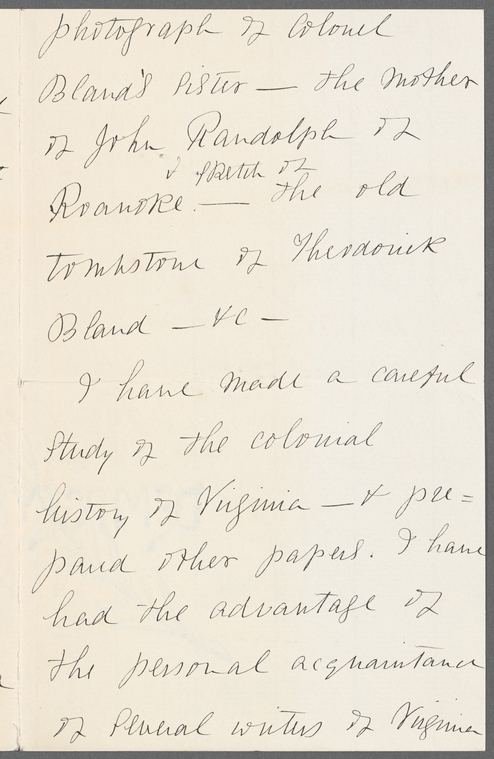 photograph of Colonel
Bland's sister — the mother
of John Randolph of
& sketch of
Roanoke. — the old
tombstone of Theodorick
Bland — &c —
I have made a careful
study of the colonial
history of Virginia — & pre=
pared other papers. I have
had the advantage of
the personal acquaintance
of several writers of Virginia